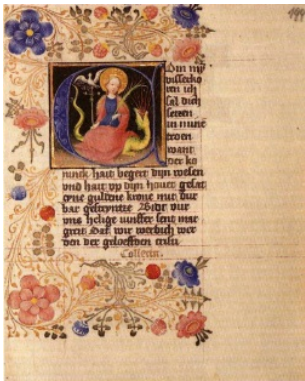 Com my
vsserko
ren ich
sal dich
setzen
in mine
troen
want
der ko
ninck hait begert dijn wesen
vnd hait vp dijn houet gesat
eyne guldene krone mit dur
bar gesteyntze Bidt vur
vns helige iunffer sent mar
greit Dat wir werdich wer
den der geloeffden cristi
Collecta